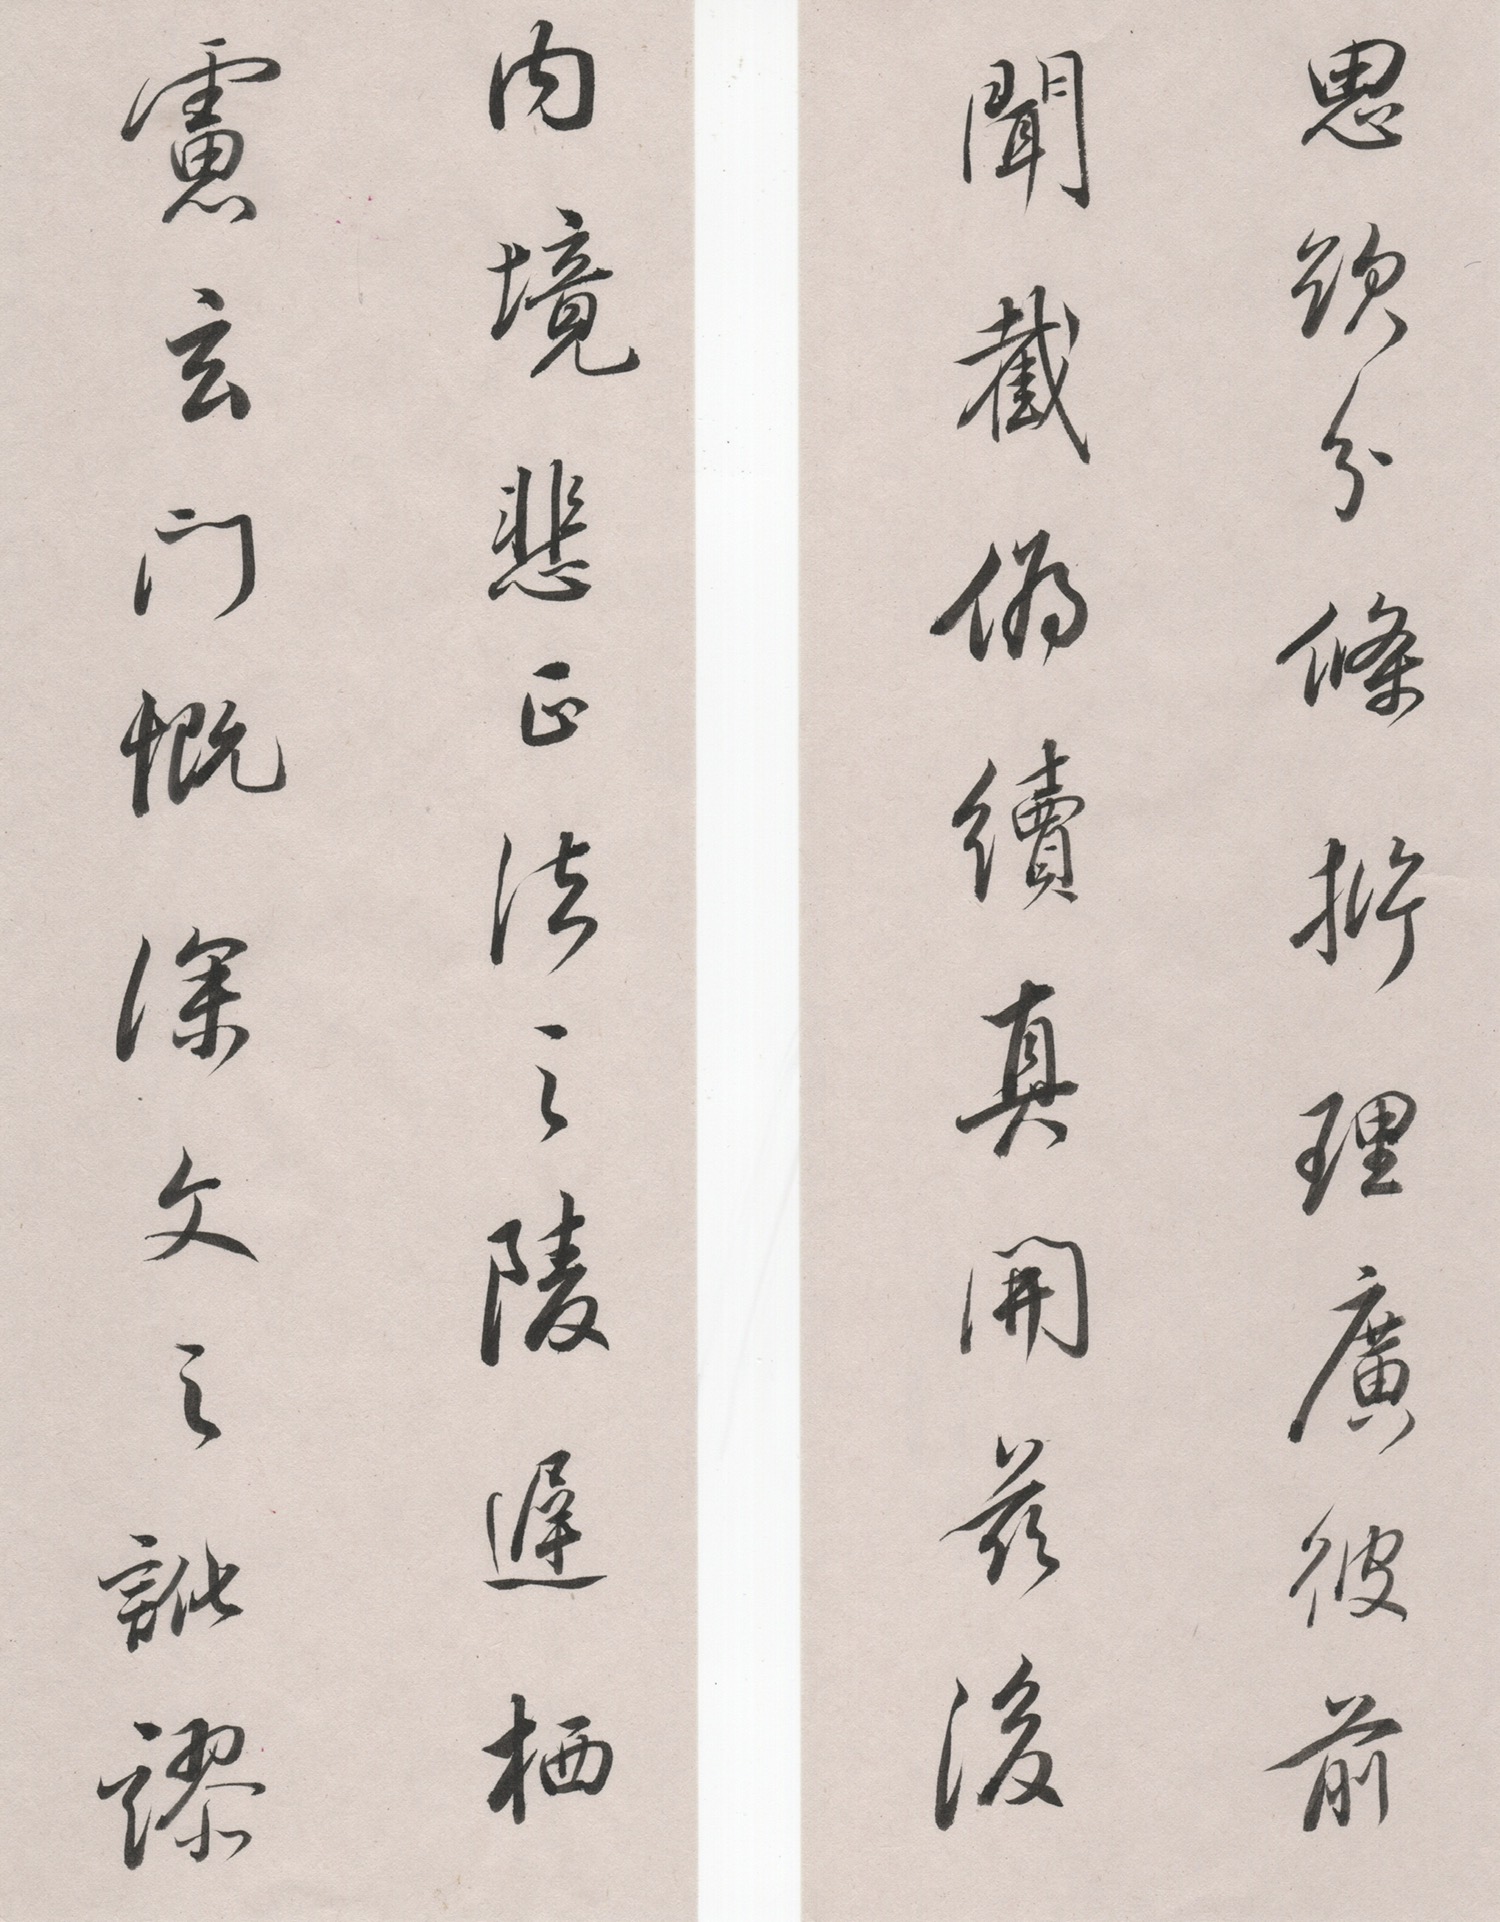 思欲分條析理廣彼前
聞截偽續真開茲後
内境悲正法之陵遲栖
慮玄門慨深文之訛謬